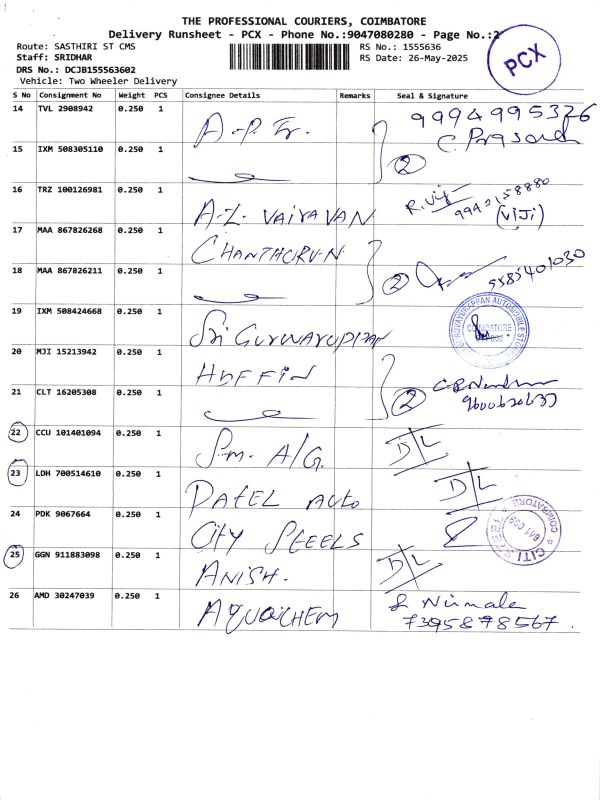 THE PROFESSIONAL COURIERS, COIMBATORE
Delivery Runsheet - PCX - Phone No.:9047080280 - Page No.:2
Route: SASTHIRI ST CMS
RS No.: 1555636
Staff: SRIDHAR
RS Date: 26-May-2025
DRS No.: DCJB155563602
Vehicle: Two Wheeler Delivery
PCX
S No Consignment No Weight PCS Consignee Details Remarks Seal & Signature
14 TVL 2908942 0.250 1 A.P. Tr. 9994995326
C. Prasad
15 IXM 508305110 0.250 1 2
16 TRZ 100126981 0.250 1 A.L. VAIRAVAN R. Viji
(VIJI)
17 MAA 867826268 0.250 1
18 MAA 867826211 0.250 1 2 5585401030
19 IXM 508424668 0.250 1 Sri Guruvaruppan
COIMBATORE
20 MJI 15213942 0.250 1 HUFFIN
21 CLT 16205308 0.250 1 2
22 CCU 101401094 0.250 1 Sm. A/G. D/L
23 LDH 700514610 0.250 1 PATEL AUTO D/L
24 PDK 9067664 0.250 1 CITY STEELS
25 GGN 911883098 0.250 1 ANISH. D/L
26 AMD 30247039 0.250 1 AQUACHEM S. Nirmala
7395878567